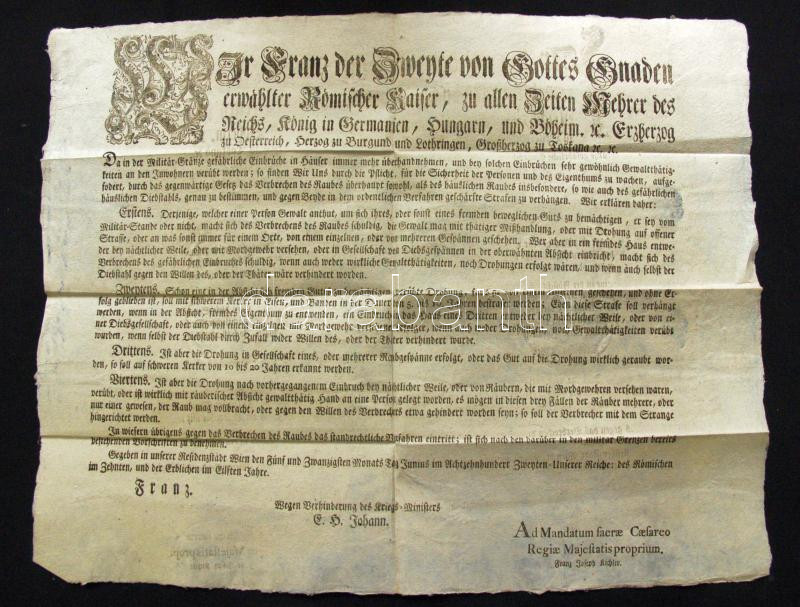 Wir Franz der Zweyte von Gottes Gnaden
erwählter Römischer Kaiser, zu allen Zeiten Mehrer des
Reichs, König in Germanien, Hungarn, und Böheim. ꝛc. Erzherzog
zu Oesterreich, Herzog zu Burgund und Lothringen, Großherzog zu Toskana ꝛc. ꝛc.
Da in der Militär-Gränze gefährliche Einbrüche in Häuser immer mehr überhandnehmen, und bey solchen Einbrüchen sehr gewöhnlich Gewaltthätig-
keiten an den Inwohnern verübt werden; so finden Wir Uns durch die Pflicht, für die Sicherheit der Personen und des Eigenthums zu wachen, aufge-
fodert, durch das gegenwärtige Gesez das Verbrechen des Raubes überhaupt sowohl, als des häuslichen Raubes insbesondere, so wie auch des gefährlichen
häuslichen Diebstahls, genau zu bestimmen, und gegen Beyde in dem ordentlichen Verfahren geschärfte Strafen zu verhängen. Wir erklären daher:
Erstens. Derjenige, welcher einer Person Gewalt anthut, um sich ihres, oder sonst eines fremden beweglichen Guts zu bemächtigen, er sey vom
Militär-Stande oder nicht, macht sich des Verbrechens des Raubes schuldig, die Gewalt mag mit thätiger Mißhandlung, oder mit Drohung auf offener
Strasse, oder an was sonst immer für einem Orte, von einem einzelnen, oder von mehreren Gespännen geschehen. Wer aber in ein fremdes Haus entwe-
der bey nächtlicher Weile, oder mit Mordgewehr versehen, oder in Gesellschaft von Diebsgespännen in der oberwähnten Absicht einbricht, macht sich des
Verbrechens des gefährlichen Einbruchs schuldig, wenn auch weder wirkliche Gewaltthätigkeiten, noch Drohungen erfolgt wären, und wenn auch selbst der
Diebstahl gegen den Willen des, oder der Thäter wäre verhindert worden.
Zweytens. Schon eine in der Absicht fremden Guts zu bemächtigen verübte Drohung, geschehen, und ohne Er-
folg geblieben ist, soll mit schwerem Kerker in Eisen und Banden in der Dauer von werden; Eben diese Strafe soll verhängt
werden, wenn in der Absicht, fremdes Eigenthum zu entwenden, ein Einbruch in das Haus des Dritten entweder bey nächtlicher Weile, oder von ei-
ner Diebsgesellschaft, oder auch von einem einzelnen mit Mordgewehr versehenen erfolget, wenn auch weder Drohungen, noch Gewaltthätigkeiten verübt
wurden, wenn selbst der Diebstahl durch Zufall wider Willen des, oder der Thäter verhindert wurde.
Drittens. Ist aber die Drohung in Gesellschaft eines, oder mehrerer Raubgespänne erfolgt, oder das Gut auf die Drohung wirklich geraubt wor-
den, so soll auf schweren Kerker von 10 bis 20 Jahren erkannt werden.
Viertens. Ist aber die Drohung nach vorhergegangenem Einbruch bey nächtlicher Weile, oder von Räubern, die mit Mordgewehren versehen waren,
verübt, oder ist wirklich mit räuberischer Absicht gewaltthätig Hand an eine Person gelegt worden, es mögen in diesen drey Fällen der Räuber mehrere, oder
nur einer gewesen, der Raub mag vollbracht, oder gegen den Willen des Verbrechers etwa gehindert worden seyn; so soll der Verbrecher mit dem Strange
hingerichtet werden.
In wiefern übrigens gegen das Verbrechen des Raubes das standrechtliche Verfahren eintritt; ist sich nach den darüber in den militär Grenzen bereits
bestehenden Vorschriften zu benehmen.
Gegeben in unserer Residenzstadt Wien den Fünf und Zwanzigsten Monats Tag Junius im Achtzehnhundert Zweyten-Unserer Reiche: des Römischen
im Zehnten, und der Erblichen im Eilften Jahre.
Franz.
Wegen Verhinderung des Kriegs-Ministers
E. H. Johann.
Ad Mandatum sacræ Cæsareo
Regiæ Majestatis proprium.
Franz Joseph Küchler.
darabanth